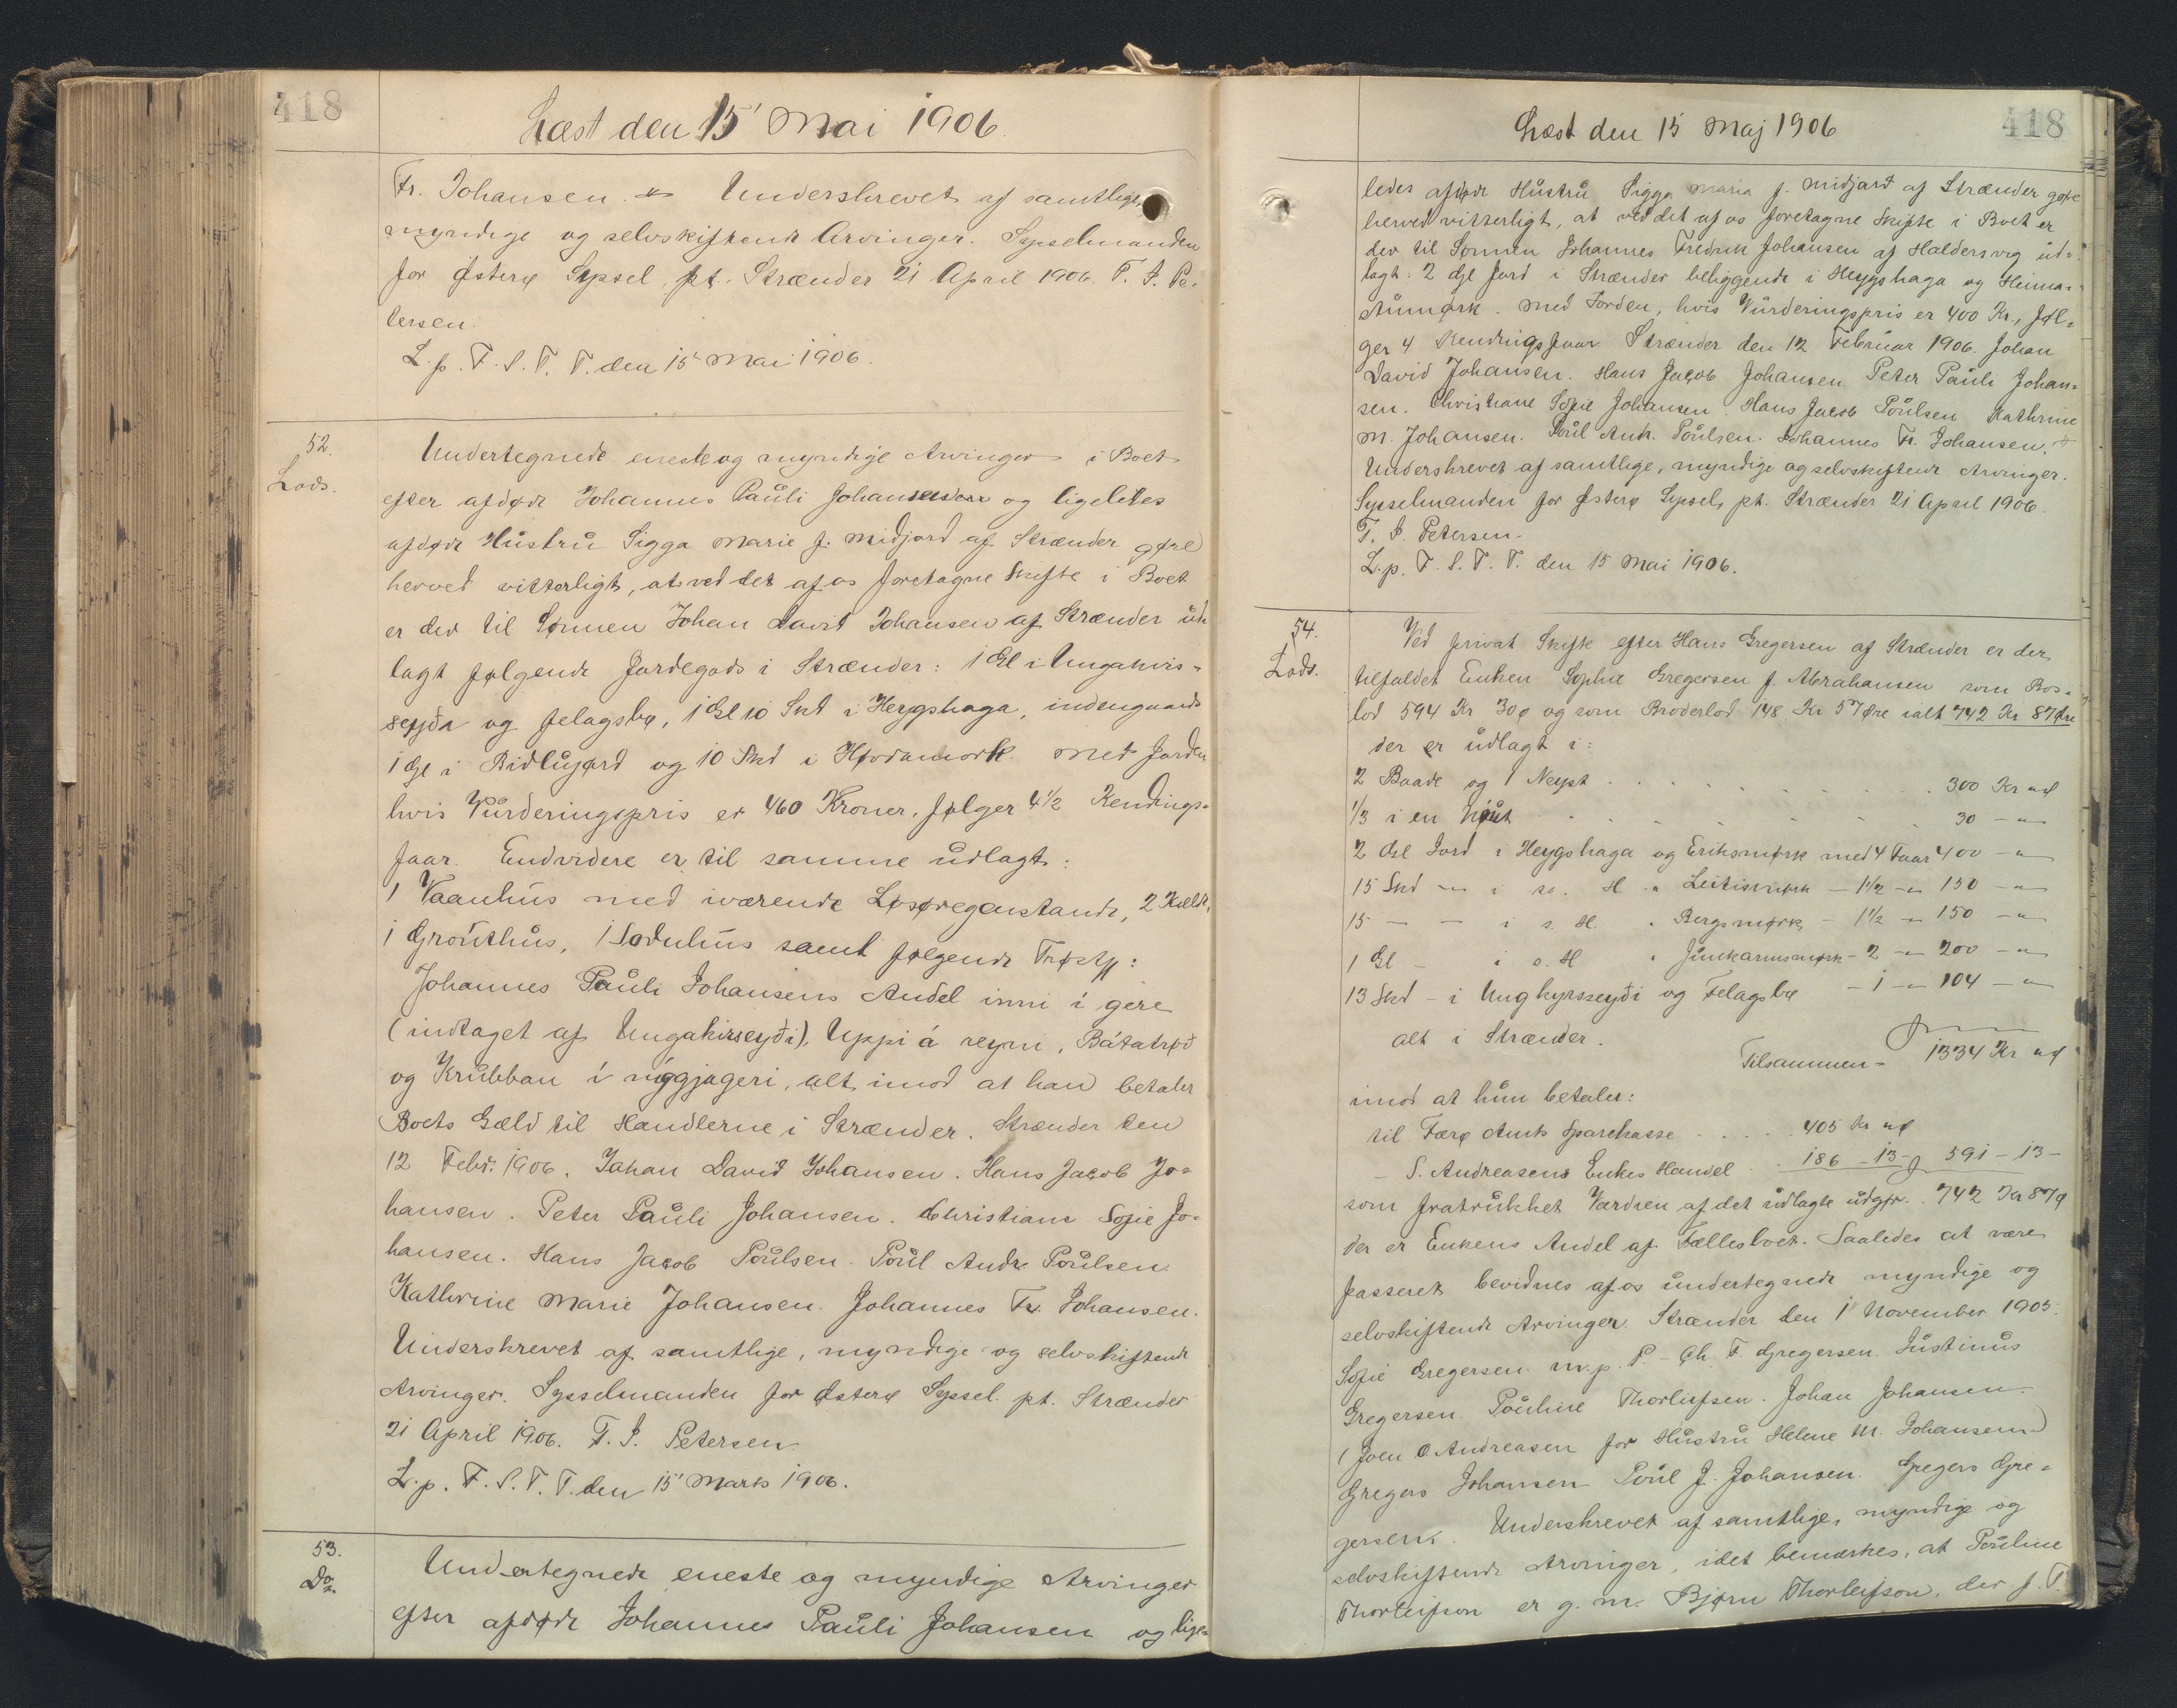 418
Læst den 15' Mai 1906.
Fr. Johansen. Underskrevet af samtlige,
myndige og selvskiftende Arvinger. Sysselmanden
for Østerø Syssel, pt. Strænder 21 April 1906. P. J. Pe-
tersen.
L. p. F. S. T. T. den 15 Mai 1906.
52.
Lods.
Undertegnede eneste og myndige Arvinger i Boet
efter afdøde Johannes Pauli Johansen og ligeledes
afdøde Hustru Sigga Marie f. Midjord af Strænder gøre
herved vitterligt, at ved det af os foretagne Skifte i Boet
er der til Sønnen Johan David Johansen af Strænder ud
lagt følgende Jordegods i Strænder: 1 Gl i Ungakvis-
seyða og felagsbø, 1 Gl 10 Skd i Heygshaga, indengaards
1 Gl i Bidlugørd og 10 Skd i Hørdamork. Med Jorden
hvis Vurderingspris er 460 Kroner, følger 4½ Kendings-
faar. Endvidere er til samme udlagt:
1 Vaanhus med iværende Løsøregenstande, 2 Kælde,
1 Grouthus, 1 Torvhus samt følgende Trøstf:
Johannes Pauli Johansens Andel inni í gere
(indtaget af Ungakisseyði), Uppi á reyni, Bátatrøð
og Krubban í niggjageri, alt imod at han betaler
Boets Gæld til Handlerne i Strænder. Strænder den
12 Febr. 1906. Johan David Johansen. Hans Jacob Jo-
hansen. Peter Pauli Johansen. Christiane Sofie Jo-
hansen. Hans Jacob Poulsen. Poul Andr. Poulsen.
Kathrine Marie Johansen. Johannes Fr. Johansen.
Underskrevet af samtlige, myndige og selvskiftende
Arvinger. Sysselmanden for Østerø Syssel. pt. Strænder
21 April 1906. P. J. Petersen.
L. p. F. S. T. T. den 15' Marts 1906.
53.
Do.
Undertegnede eneste og myndige Arvinger
efter afdøde Johannes Pauli Johansen og lige-
Læst den 15 Maj 1906
418
ledes afdøde Hustru Sigga Maria f. Midjord af Strænder gøre
herved vitterligt, at ved det af os foretagne Skifte i Boet er
der til Sønnen Johannes Fredrik Johansen af Haldersvig ud-
lagt: 2 Gl Jord i Strænder beliggende i Heygshaga og Heima-
Mumørk. Med Jorden, hvis Vurderingspris er 400 Kr., føl-
ger 4 Kendingsfaar. Strænder den 12 Februar 1906. Johan
David Johansen. Hans Jacob Johansen. Peter Pauli Johan-
sen. Christiane Sofie Johansen. Hans Jacob Poulsen. Kathrine
M. Johansen. Poul Andr. Poulsen. Johannes Fr. Johansen.
Underskrevet af samtlige, myndige og selvskiftende Arvinger.
Sysselmanden for Østerø Syssel, pt. Strænder 21 April 1906.
P. J. Petersen.
L. p. F. S. T. T. den 15 Mai 1906.
54.
Lods.
Ved privat Skifte efter Hans Gregersen af Strænder er der
tilfaldet Enken Sophie Gregersen f. Abrahamsen som Bos-
lod 594 Kr 30 ø og som Broderlod 148 Kr 57 Øre ialt 742 Kr 87 Øre
der er udlagt i:
2 Baade og 1 Neyst 300 Kr
1/3 i en 30 - "
2 Gl Jord i Heygshaga og Eriksmørk med 4 Faar 400 - "
15 Skd - i s. H " - 1½ - 150 - "
15 - - i s. H. " Bergsmørk - 1½ - 150 - "
1 Gl - i s. H " - 2 - 200 - "
13 Skd - i Ungkyrsseyði og Felagsbø - 1 - 104 - "
alt i Strænder.
Tilsammen - 1334 Kr
imod at hun betaler:
til Færø Amts Sparekasse 405 Kr
- S. Andreasens Enkes Handel 186 - 13 - 591 - 13 -
som fratrukket Værdien af det udlagte udgør 742 Kr 87 ø
der er Enkens Andel af Fællesboet. Saaledes at være
passeret bevidnes af os undertegnede myndige og
selvskiftende Arvinger. Strænder den 1 November 1905.
Sofie Gregersen m. p. P. - Ch. F. Gregersen. Justinus
Gregersen. Pouline Thorleifsen. Johan Johansen.
(Joen O Andreasen for Hustru Helene M. Johansen)
Gregers Johansen Poul J. Johansen. Gregers Gre-
gersen. Underskrevet af samtlige, myndige og
selvskiftende Arvinger, idet bemærkes, at Pouline
Thorleifson er g. m. Bjørn Thorleifson, der f. T.